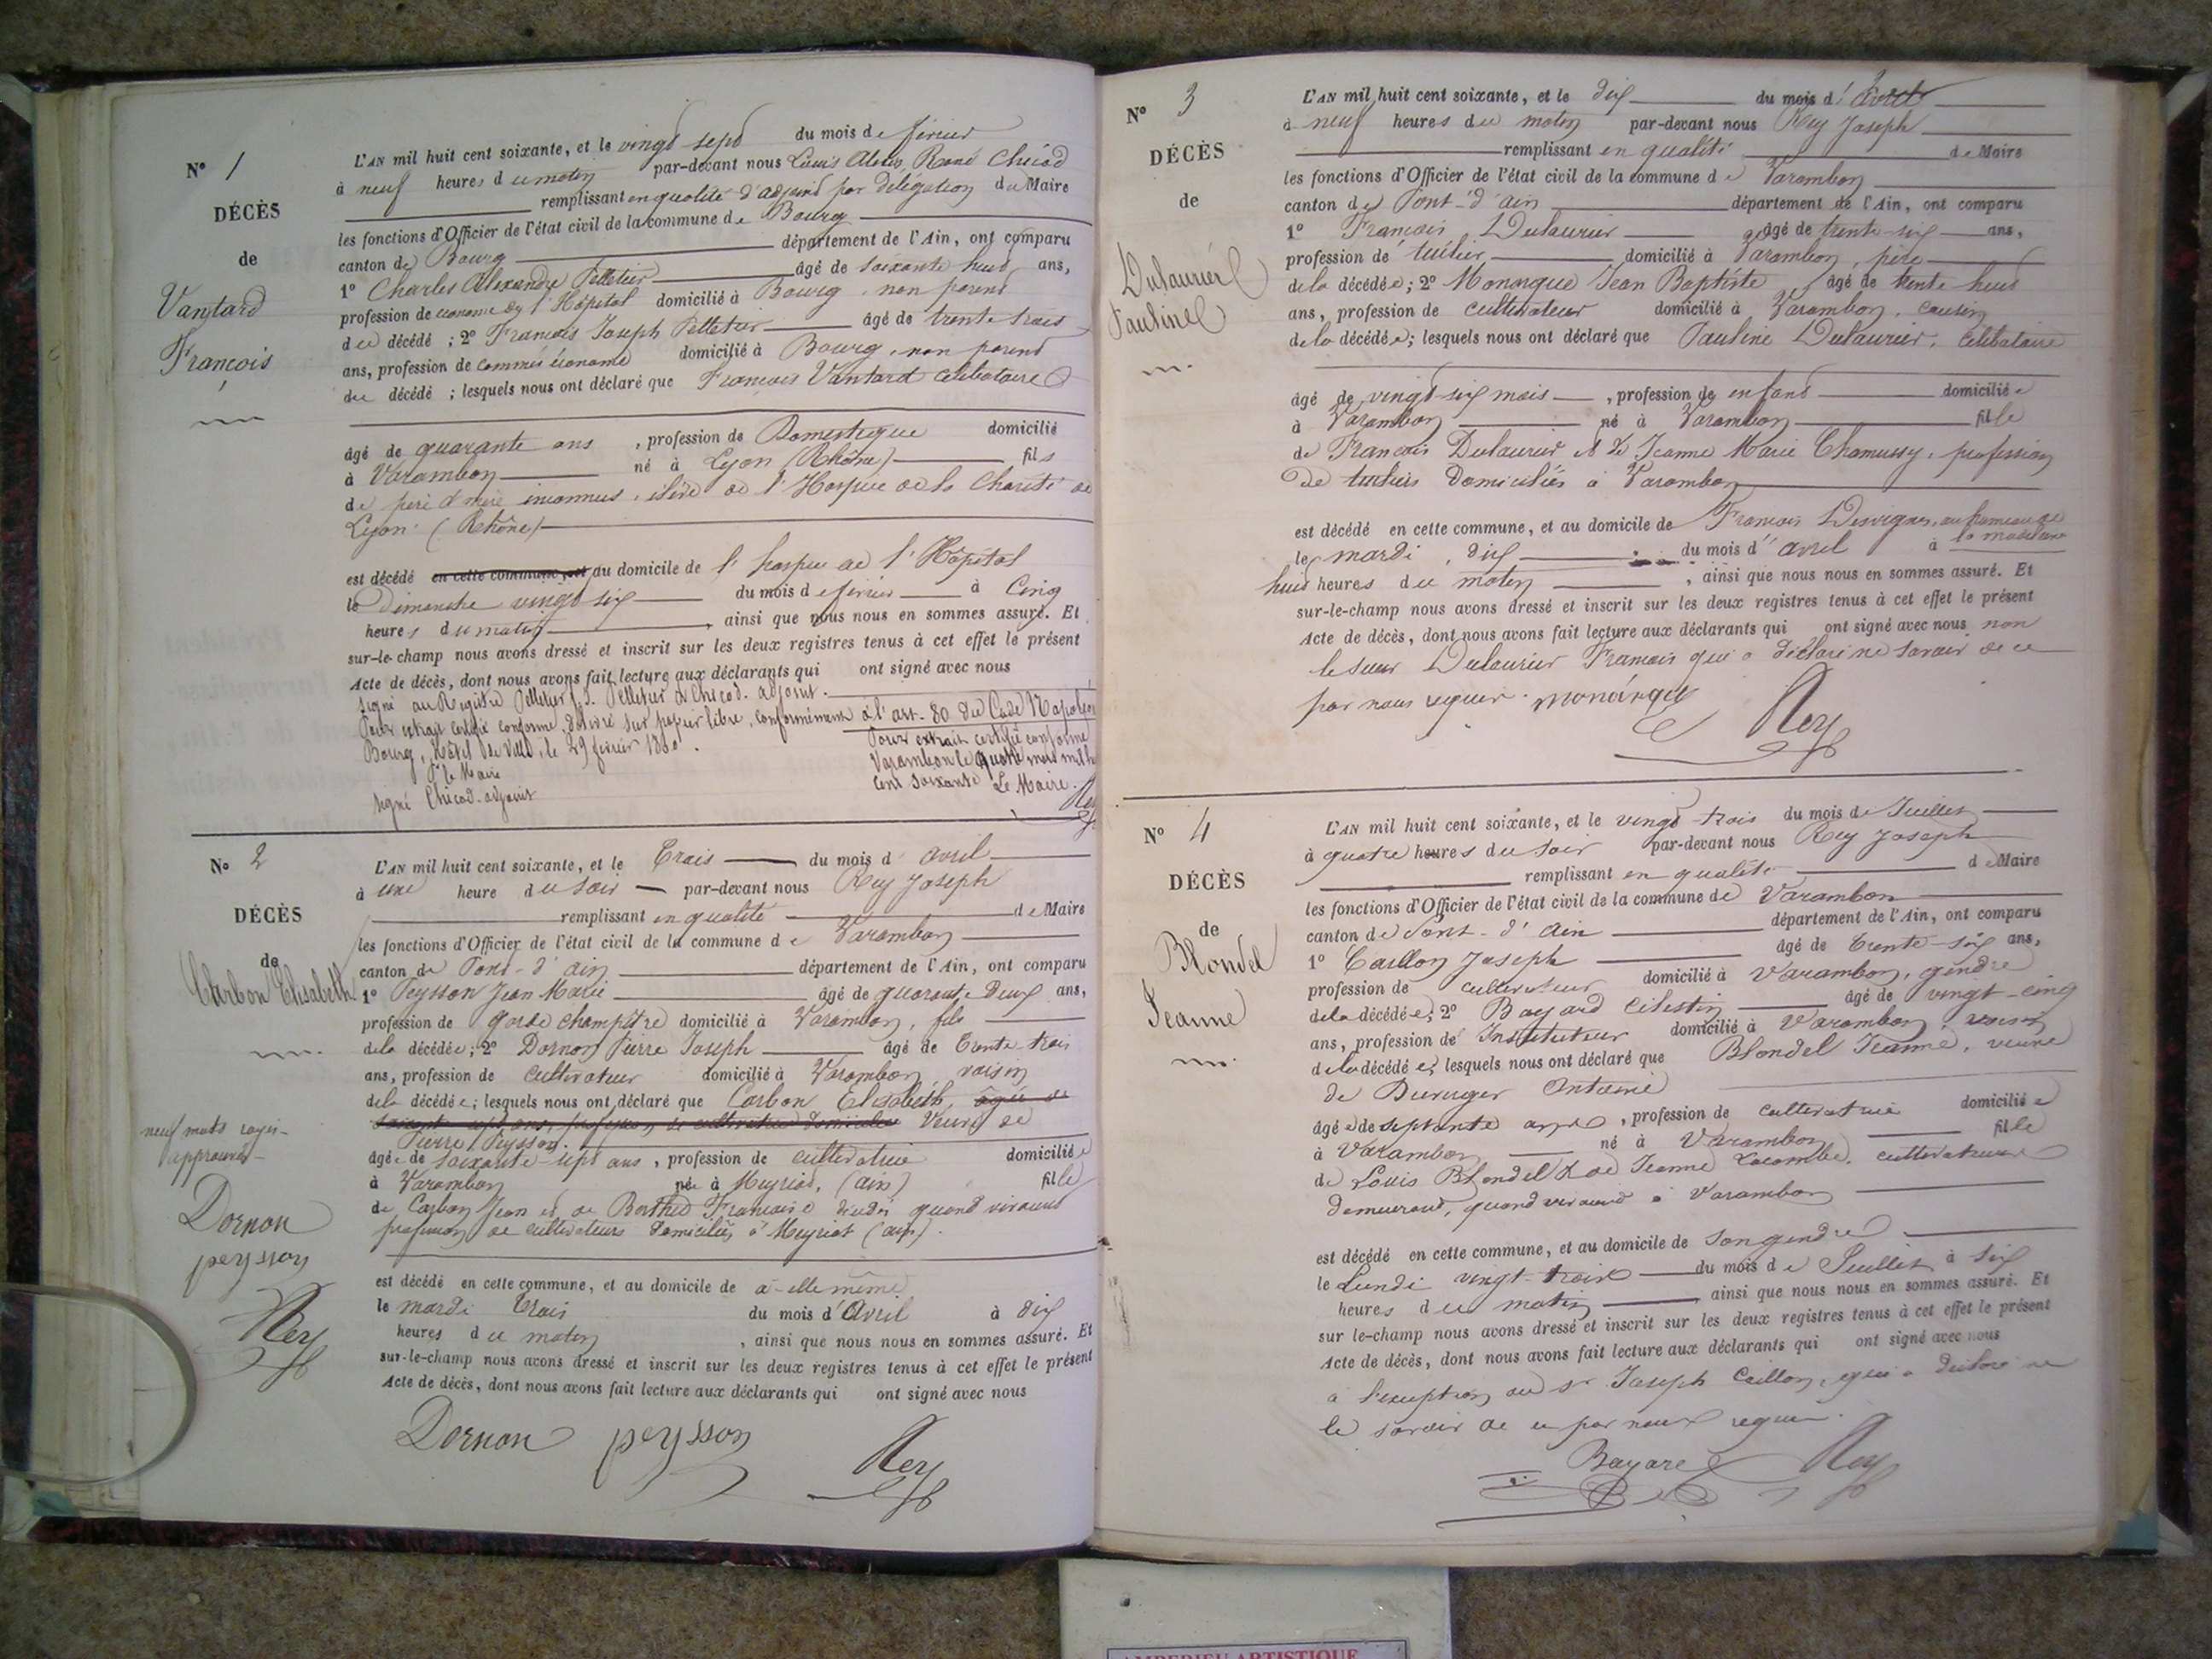 N° 1
DÉCÈS
de
Vantard
François
L'AN mil huit cent soixante, et le vingt sept du mois de février
à neuf heures du matin par-devant nous Louis Alexis René Chicod
remplissant en qualité d'adjoint par délégation du Maire
les fonctions d'Officier de l'état civil de la commune de Bourg
canton de Bourg département de l'Ain, ont comparu
1° Charles Alexandre Pelletier âgé de soixante huit ans,
profession de économe de l'Hôpital domicilié à Bourg, non parent
du décédé ; 2° François Joseph Pelletier âgé de trente trois
ans, profession de commis économe domicilié à Bourg, non parent
du décédé ; lesquels nous ont déclaré que François Vantard célibataire
âgé de quarante ans, profession de Domestique domicilié
à Varambon né à Lyon (Rhône) fils
de père et mère inconnus, élève de l'Hospice de la Charité de
Lyon (Rhône)
est décédé en cette commune, et au domicile de l'hospice de l'Hôpital
le Dimanche vingt six du mois de février à Cinq
heures du matin, ainsi que nous nous en sommes assuré. Et
sur-le-champ nous avons dressé et inscrit sur les deux registres tenus à cet effet le présent
Acte de décès, dont nous avons fait lecture aux déclarants qui ont signé avec nous
signé au Registre Pelletier, J. Pelletier & Chicod. adjoint.
Pour extrait certifié conforme, délivré sur papier libre, conformément à l'art. 80 du Code Napoléon
Bourg, Hôtel de Ville, le 29 février 1860.
Pr le Maire
signé Chicod-adjoint
Pour extrait certifié conforme
Varambon le quatre mars mil h
cent soixante Le Maire.
Rey
N° 2
DÉCÈS
de
Carbon Elisabeth
neuf mots rayés
approuvés
Dornon
peysson
Rey
L'AN mil huit cent soixante, et le Trois du mois d'avril
à une heure du soir par-devant nous Rey Joseph
remplissant en qualité de Maire
les fonctions d'Officier de l'état civil de la commune de Varambon
canton de Pont-d'ain département de l'Ain, ont comparu
1° Peysson Jean Marie âgé de quarante Deux ans,
profession de garde champêtre domicilié à Varambon, fils
de la décédée ; 2° Dornon Pierre Joseph âgé de trente trois
ans, profession de cultivateur domicilié à Varambon voisin
de la décédée ; lesquels nous ont déclaré que Carbon Elisabeth, âgée de
soixante sept ans, profession de cultivatrice domiciliée Veuve de
Pierre Peysson.
âgée de soixante-sept ans, profession de cultivatrice domiciliée
à Varambon née à Meyriat, (ain) fille
de Carbon Jean et de Berthet Françoise quand vivaient
profession de cultivateurs domiciliés à Meyriat (ain).
est décédé en cette commune, et au domicile de à elle même
le mardi trois du mois d'Avril à dix
heures du matin, ainsi que nous nous en sommes assuré. Et
sur-le-champ nous avons dressé et inscrit sur les deux registres tenus à cet effet le présent
Acte de décès, dont nous avons fait lecture aux déclarants qui ont signé avec nous
Dornon peysson Rey
N° 3
DÉCÈS
de
Dulaurier
Pauline
L'AN mil huit cent soixante, et le dix du mois d'avril
à neuf heures du matin par-devant nous Rey Joseph
remplissant en qualité de Maire
les fonctions d'Officier de l'état civil de la commune de Varambon
canton de Pont-d'ain département de l'Ain, ont comparu
1° François Dulaurier âgé de trente-six ans,
profession de tuilier domicilié à Varambon, père
de la décédée ; 2° Monarque Jean Baptiste âgé de trente huit
ans, profession de cultivateur domicilié à Varambon, cousin
de la décédée ; lesquels nous ont déclaré que Pauline Dulaurier, célibataire
âgé de vingt-six mois, profession de enfant domiciliée
à Varambon né à Varambon fille
de François Dulaurier et de Jeanne Marie Chamussy, profession
de tuiliers domiciliés à Varambon
est décédé en cette commune, et au domicile de François Desvignes, au hameau de
le mardi, dix du mois d'avril à
huit heures du matin, ainsi que nous nous en sommes assuré. Et
sur-le-champ nous avons dressé et inscrit sur les deux registres tenus à cet effet le présent
Acte de décès, dont nous avons fait lecture aux déclarants qui ont signé avec nous non
le sieur Dulaurier François qui a déclaré ne savoir de ce
par nous requis. monarque Rey
N° 4
DÉCÈS
de
Blondel
Jeanne
L'AN mil huit cent soixante, et le vingt-trois du mois de Juillet
à quatre heures du soir par-devant nous Rey Joseph
remplissant en qualité de Maire
les fonctions d'Officier de l'état civil de la commune de Varambon
canton de Pont-d'ain département de l'Ain, ont comparu
1° Caillon Joseph âgé de trente-six ans,
profession de cultivateur domicilié à Varambon, gendre
de la décédée ; 2° Bayard Célestin âgé de vingt-cinq
ans, profession de Instituteur domicilié à Varambon, voisin
de la décédée, lesquels nous ont déclaré que Blondel Jeanne, veuve
de Antoine
âgée de septante ans, profession de cultivatrice domiciliée
à Varambon né à Varambon fille
de Louis Blondel & de Jeanne Lacombe, cultivateurs
demeurant, quand vivaient à Varambon
est décédé en cette commune, et au domicile de son gendre
le Lundi vingt-trois du mois de Juillet à six
heures du matin, ainsi que nous nous en sommes assuré. Et
sur le-champ nous avons dressé et inscrit sur les deux registres tenus à cet effet le présent
Acte de décès, dont nous avons fait lecture aux déclarants qui ont signé avec nous
à l'exception du sr Joseph Caillon, qui a déclaré ne
le savoir de ce par nous requis.
Bayard Rey
AMBERIEU ARTISTIQUE